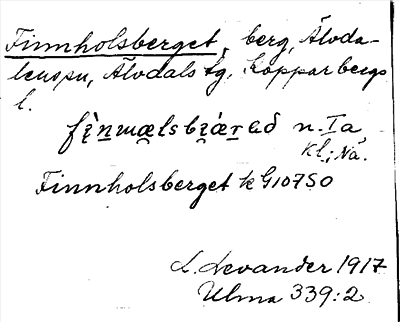 Finnholsberget, berg, Älvda-
lens sn, Älvdals tg, Kopparbergs
l.
fìnmælsbıáræð n. Ia,
Kl.; Nä.
Finnholsberget k G107SO
L. Levander 1917
Ulma 339:2